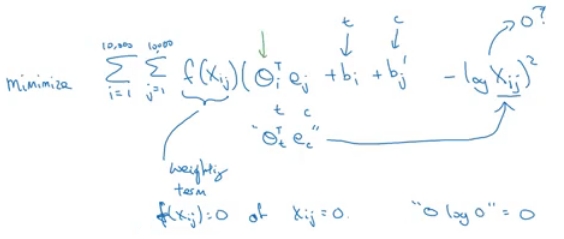 t c 0?
minimize 10,000 Σ i=1 10,000 Σ j=1 f(Xij) (θiᵀ ej + bi + bj' - log Xij)²
t c
"θtᵀ ec"
weighting
term
f(Xij)=0 if Xij=0. "0 log 0" = 0